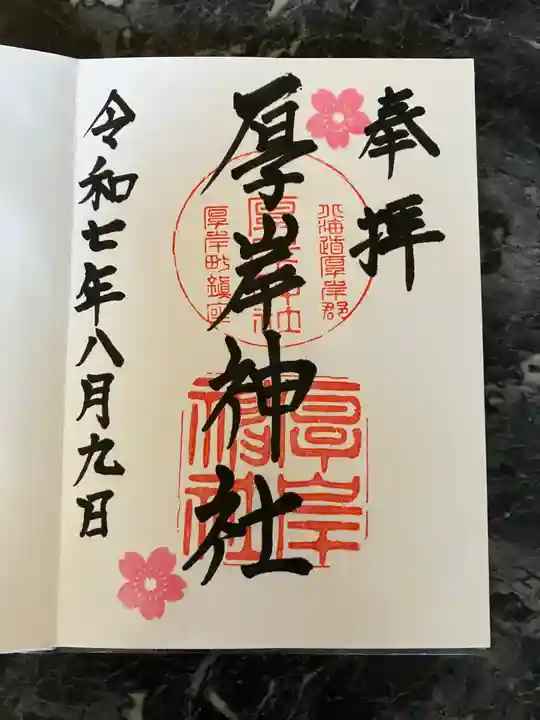 奉拝
北海道厚岸郡
厚岸神社
厚岸町鎮座
厚岸神社
厚岸
神社
令和七年八月九日